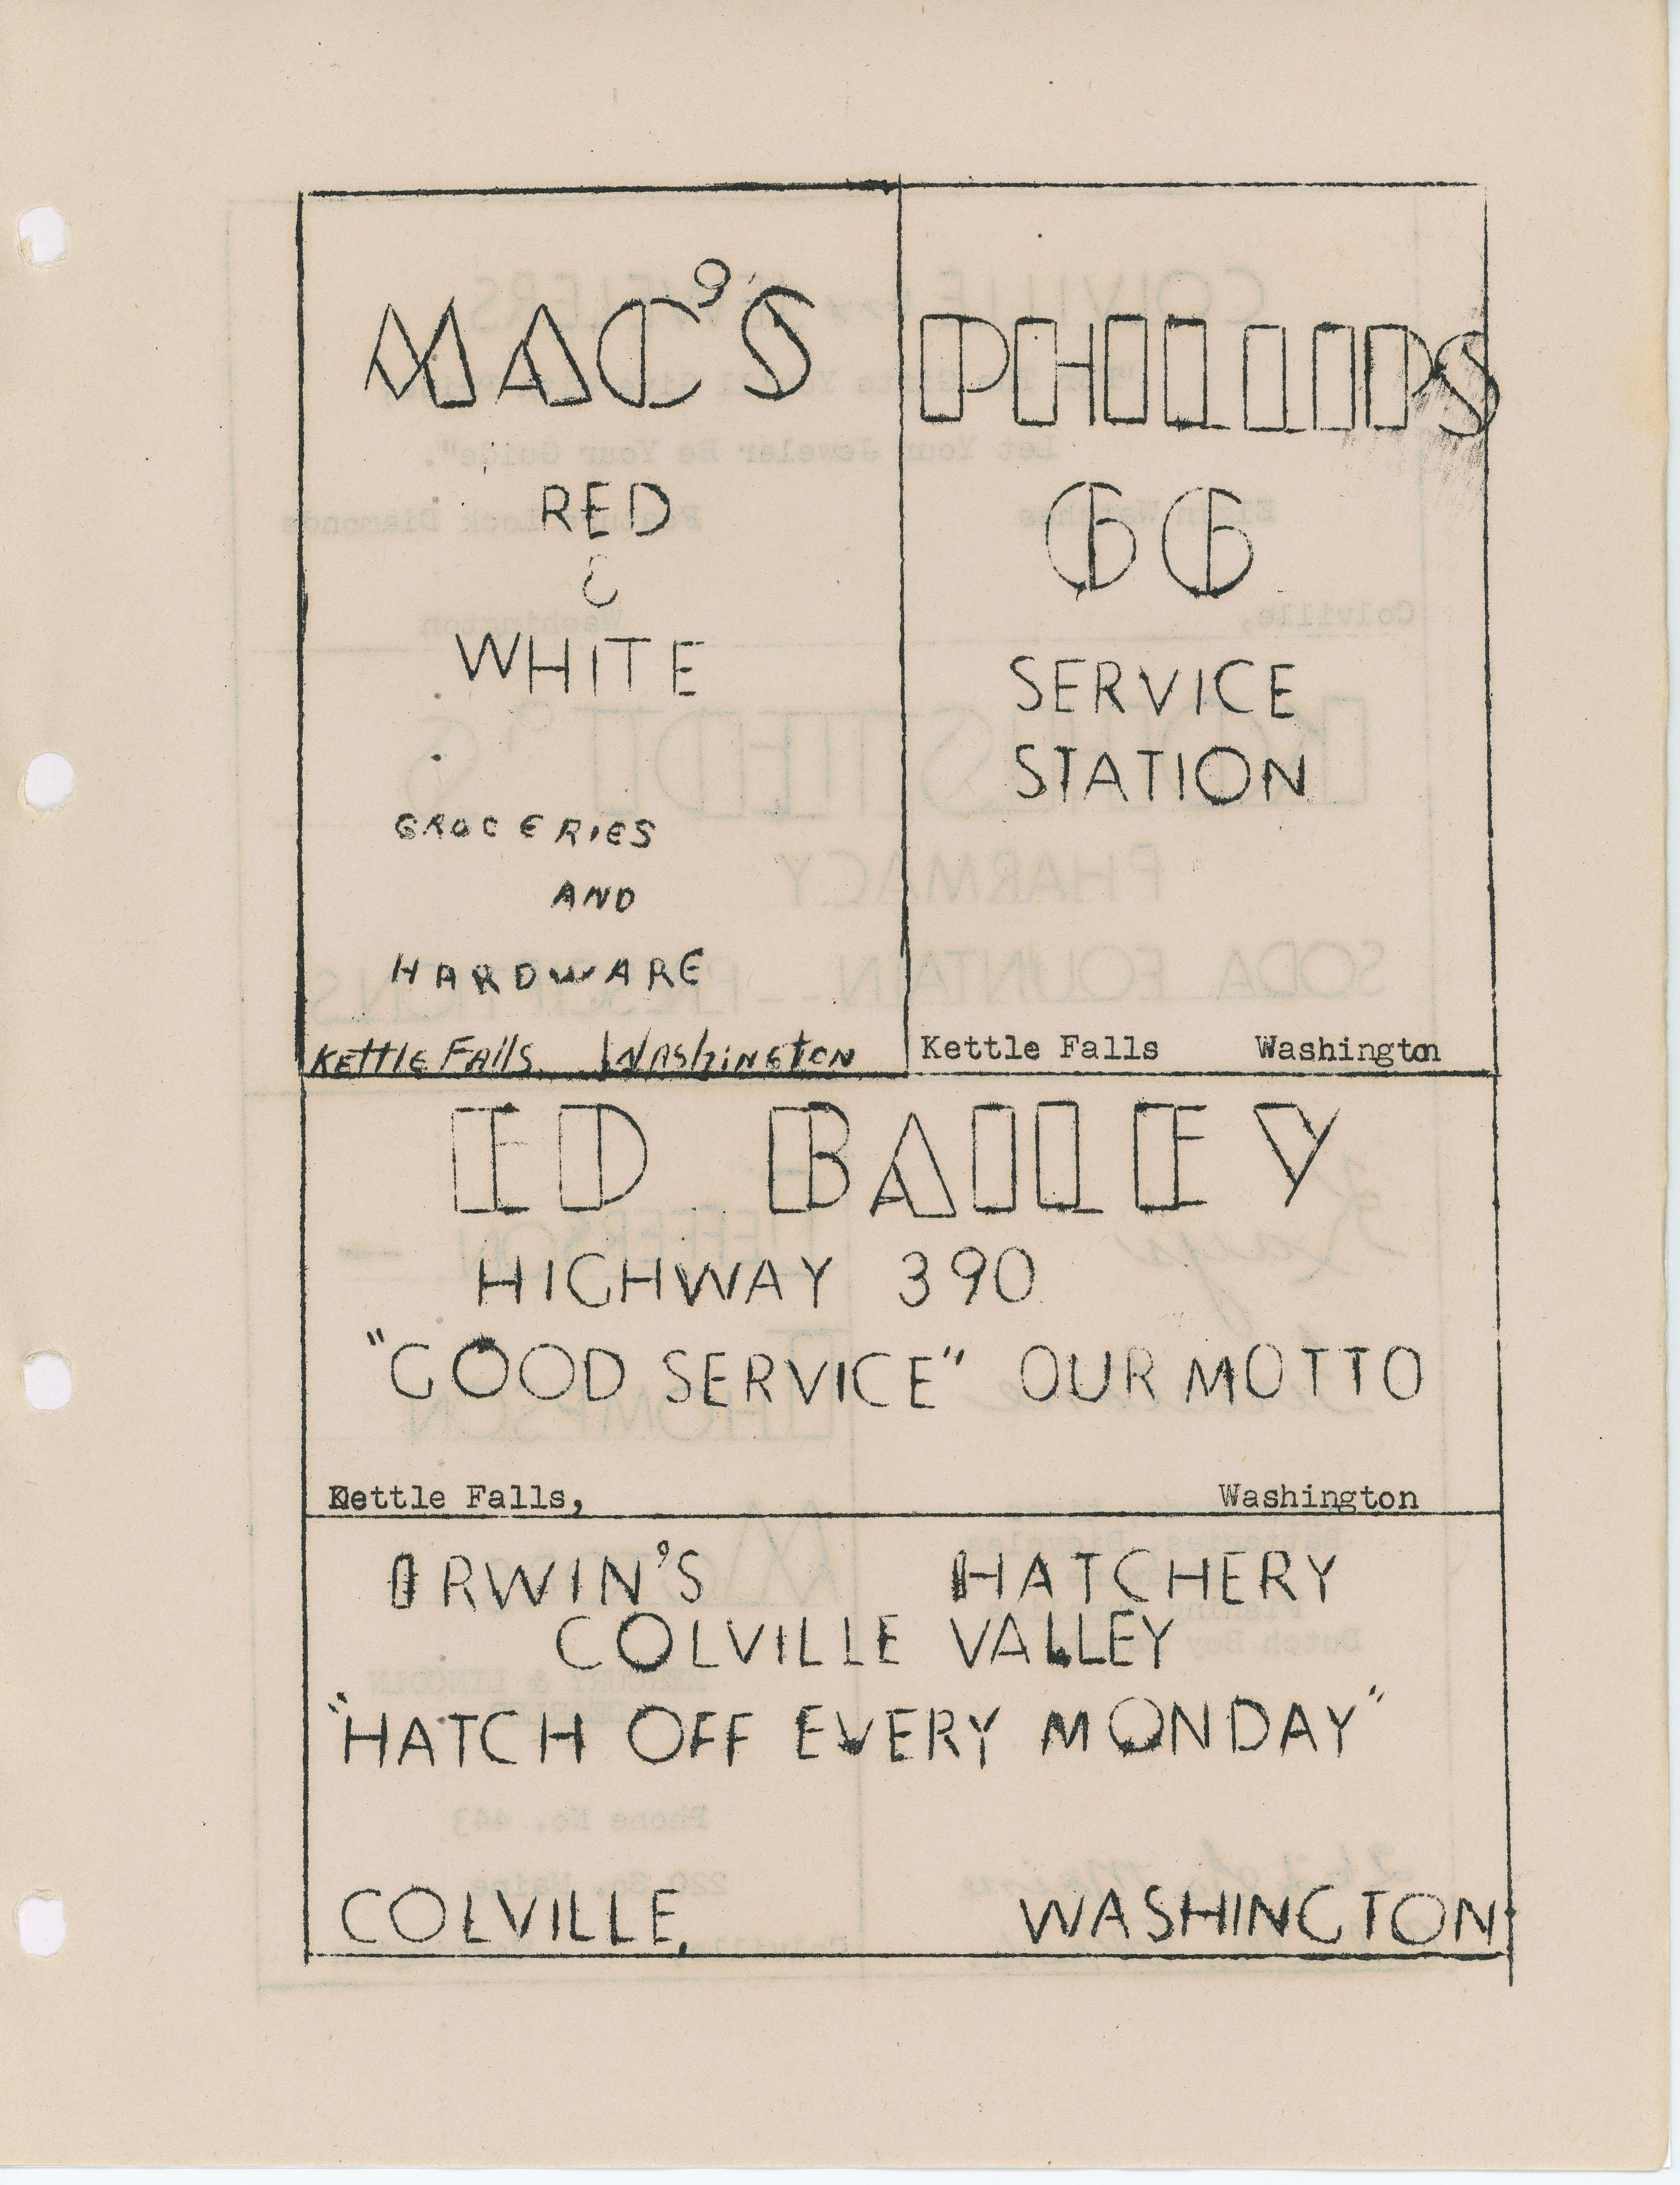 MAC'S
RED
&
WHITE
GROCERIES
AND
HARDWARE
Kettle Falls Washington
PHILLIPS
66
SERVICE
STATION
Kettle Falls Washington
ED BAILEY
HIGHWAY 390
"GOOD SERVICE" OUR MOTTO
Kettle Falls, Washington
IRWIN'S HATCHERY
COLVILLE VALLEY
"HATCH OFF EVERY MONDAY"
COLVILLE, WASHINGTON